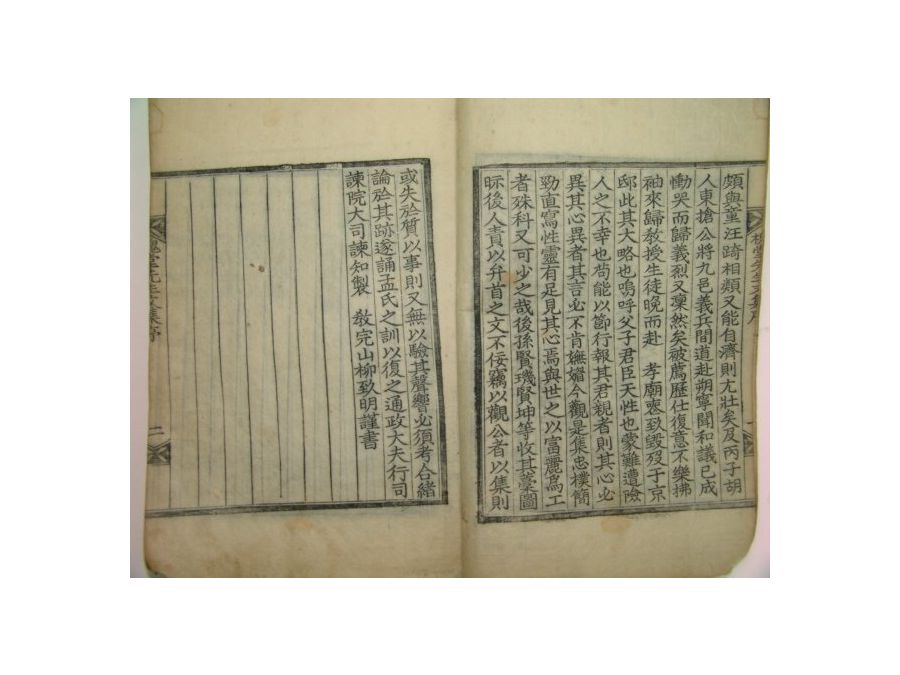 頗與童汪踦相類又能自濟則尤壯矣及丙子胡
人東搶公將九邑義兵間道赴朔寧聞和議已成
慟哭而歸義烈又凜然矣被薦歷仕復意不樂拂
袖來歸敎授生徒晚而赴 孝廟喪致毀歿于京
邸此其大略也嗚呼父子君臣天性也蒙難遭險
人之不幸也苟能以節行報其君親者則其心必
異其心異者其言必不肯嫵媚今觀是集忠樸簡
勁直寫性靈有足見其心焉與世之以富麗爲工
者殊科又可少之哉後孫賢璣賢坤等收其藁圖
眎後人責以弁首之文不佞竊以觀公者以集則
或失於質以事則又無以驗其聲響必須考合緖
論於其跡遂誦孟氏之訓以復之通政大夫行司
諫院大司諫知製 敎完山柳致明謹書
堂先生文集序
二